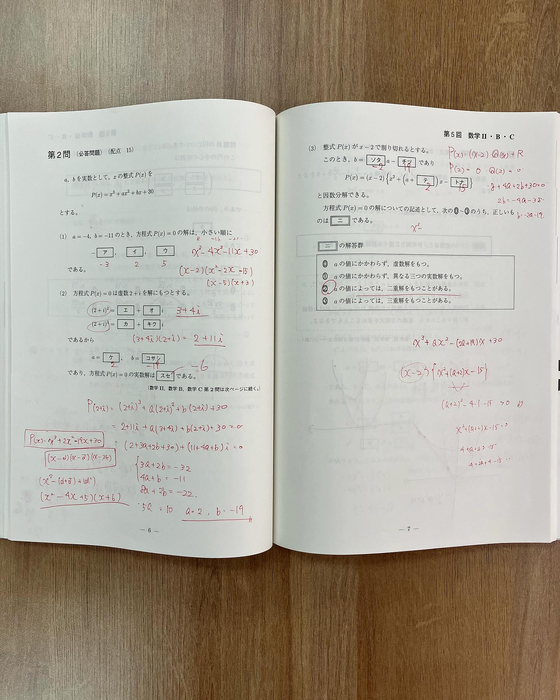 第2問 (必答問題) (配点 15)
a, bを実数として, xの整式P(x)を
P(x)=x³+ax²+bx+30
とする。
(1) a=-4, b=-11のとき, 方程式P(x)=0の解は, 小さい順に
-ア, イ, ウ
-3 2 5
である。
x³-4x²-11x+30
(x-2)(x²-2x-15)
(x-5)(x+3)
(2) 方程式P(x)=0は虚数2+iを解にもつとする。
(2+i)²=エ+オi 3+4i
(2+i)³=カ+キクi
(3+4i)(2+i)= 2+11i
であるから
a=ケ, b=コサシ
2 -19 -6
であり, 方程式P(x)=0の実数解はスセである。
(数学II, 数学B, 数学C第2問は次ページに続く。)
P(2+i)=(2+i)³+a(2+i)²+b(2+i)+30
=2+11i+a(3+4i)+b(2+i)+30=0
=(2+3a+2b+30)+(11+4a+b)i=0
3a+2b=-32
4a+b=-11
8a+2b=-22
5a=10 a=2, b=-19
(x²-4x+5)(x+6)
— 6 —
第5回 数学II・B・C
(3) 整式P(x)がx-2で割り切れるとする。
このとき, b=ソタa-チツであり
P(x)=(x-2){x²+(a+テ)x-トナ}
と因数分解できる。
方程式P(x)=0の解についての記述として, 次の⓪~③のうち, 正しいも
のはニである。
P(2)=0
8+4a+2b+30=0
2b=-4a-38
b=-2a-19
ニの解答群
⓪ aの値にかかわらず, 虚数解をもつ。
① aの値にかかわらず, 異なる三つの実数解をもつ。
② aの値によっては, 二重解をもつことがある。
③ aの値によっては, 三重解をもつことがある。
x³+ax²-(2a+19)x+30
(x-2){x²+(a+2)x-15}
x²+(a+2)x-15=0
— 7 —